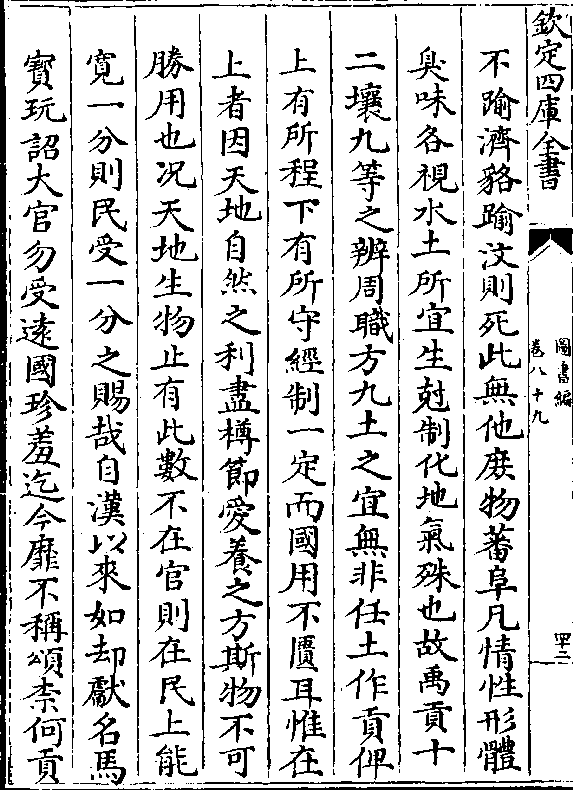 欽定四庫全書
圖書編
卷八十九
四二
不踰濟貉踰汶則死此無他庶物蕃阜凡情性形體
臭味各視水土所宜生尅制化地氣殊也故禹貢十
二壤九等之辨周職方九土之宜無非任土作貢俾
上有所程下有所守經制一定而國用不匱耳惟在
上者因天地自然之利盡樽節愛養之方斯物不可
勝用也况天地生物止有此數不在官則在民上能
寛一分則民受一分之賜哉自漢以來如却獻名馬
寳玩詔大官勿受逺國珍羞迄今靡不稱頌柰何貢